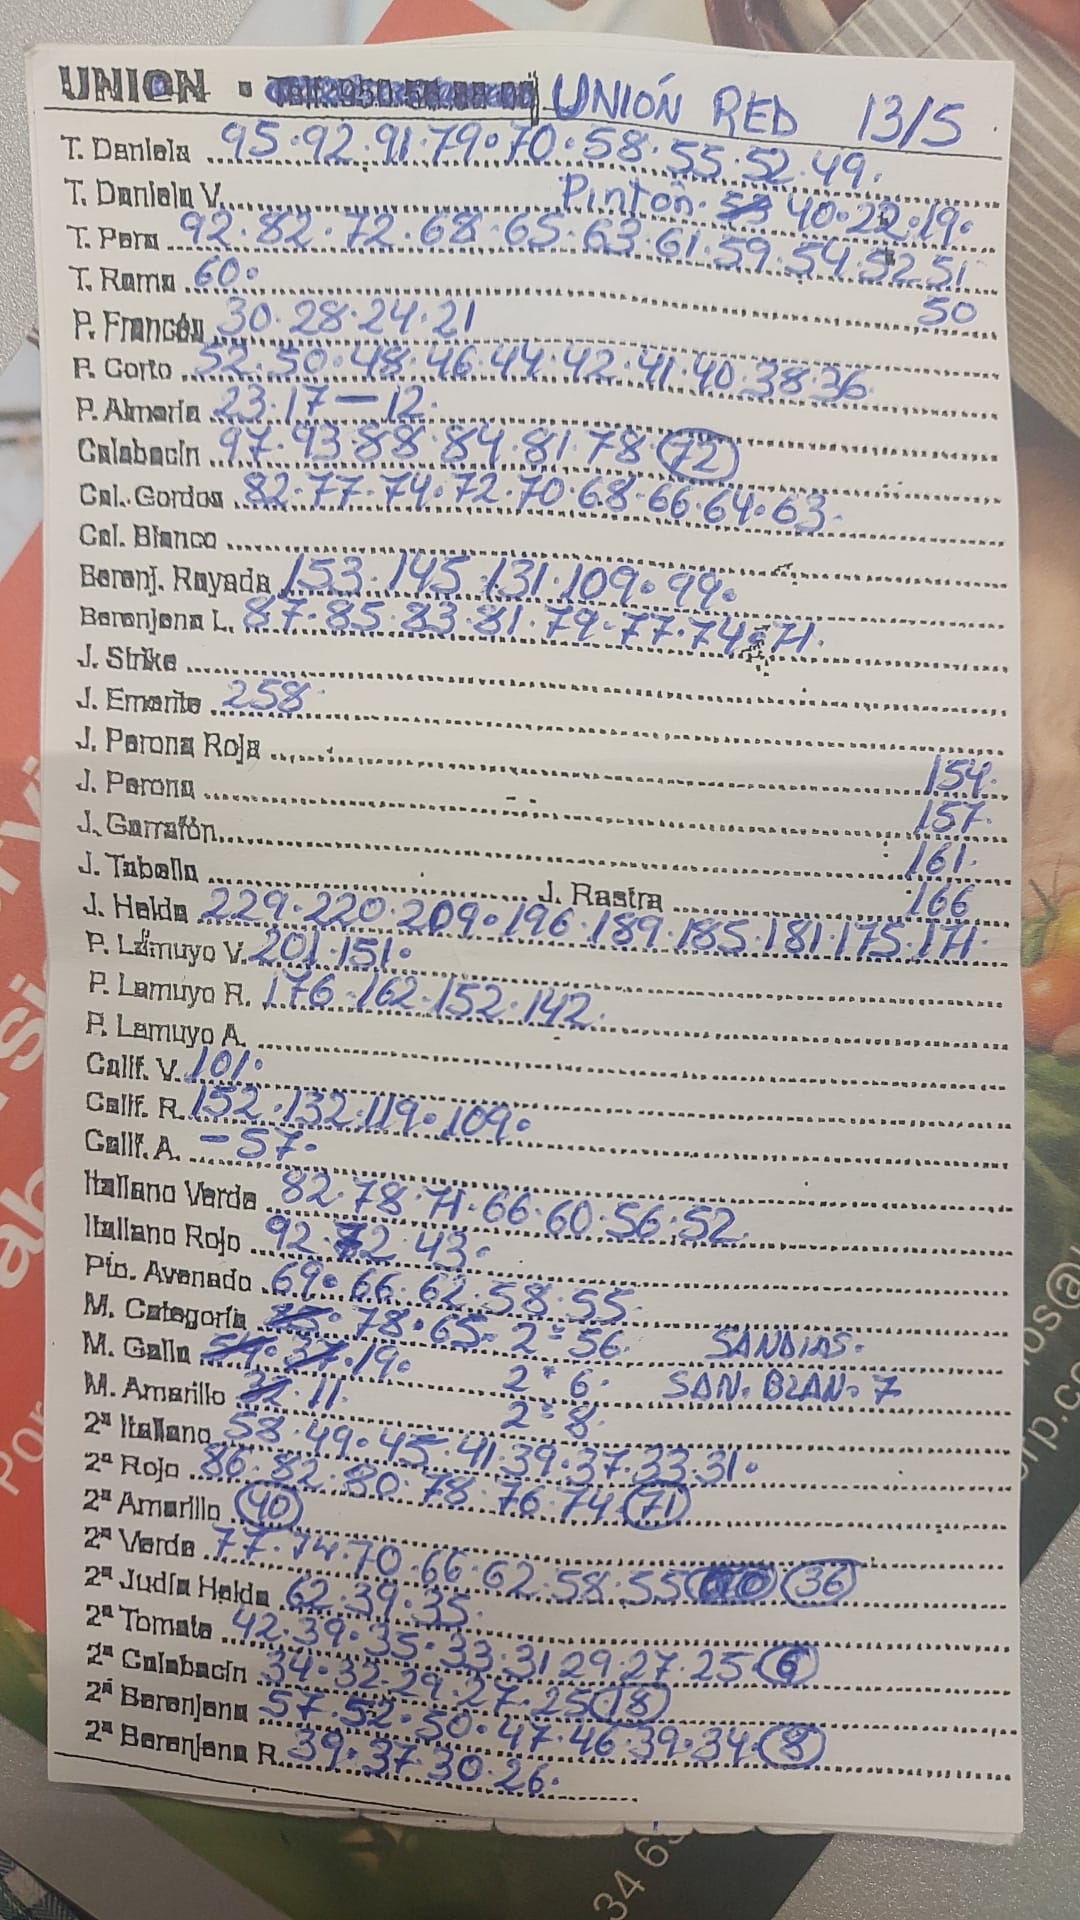 UNION · UNIÓN RED 13/5
T. Daniela 95·92·91·79·70·58·55·52·49·
T. Daniela V. Pintón· 40·22·19·
T. Pera 92·82·72·68·65·63·61·59·54·52 51
50
T. Rama 60·
P. Francés 30·28·24·21
P. Corto 52·50·48·46·44·42·41·40·38 36·
P. Almería 23·17—12·
Calabacín 97·93·88·84·81·78 72
Cal. Gordos 82·77·74·72·70·68·66·64·63·
Cal. Blanco
Berenj. Rayada 153·145·131·109·99·
Berenjena L. 87·85·83·81·79·77·74·71·
J. Strike
J. Emerite 258·
J. Perona Roja 154·
J. Perona 157·
J. Garrafón 161·
J. Tabella J. Rastra 166
J. Helda 229·220·209·196·189·185·181·175·171·
P. Lamuyo V. 201·151·
P. Lamuyo R. 176·162·152·142·
P. Lamuyo A.
Calif. V. 101·
Calif. R. 152·132·119·109·
Calif. A. —57·
Italiano Verde 82·78·71·66·60·56·52·
Italiano Rojo 92·72·43·
Pto. Avenado 69·66·62·58·55·
M. Categoría 78·65· 2ª 56· SANDIAS·
M. Galia 19· 2ª 6· SAN. BLAN· 7
M. Amarillo 11· 2ª 8·
2ª Italiano 58·49·45·41·39·37·33·31·
2ª Rojo 86·82·80·78·76·74 71
2ª Amarillo 40
2ª Verde 77·74·70·66·62·58·55 36
2ª Judía Helda 62·39·35·
2ª Tomate 42·39·35·33·31 29·27·25 6
2ª Calabacín 34·32·29·27·25 18
2ª Berenjena 57·52·50·47·46·39·34· 8
2ª Berenjena R. 39·37 30·26·
34 63